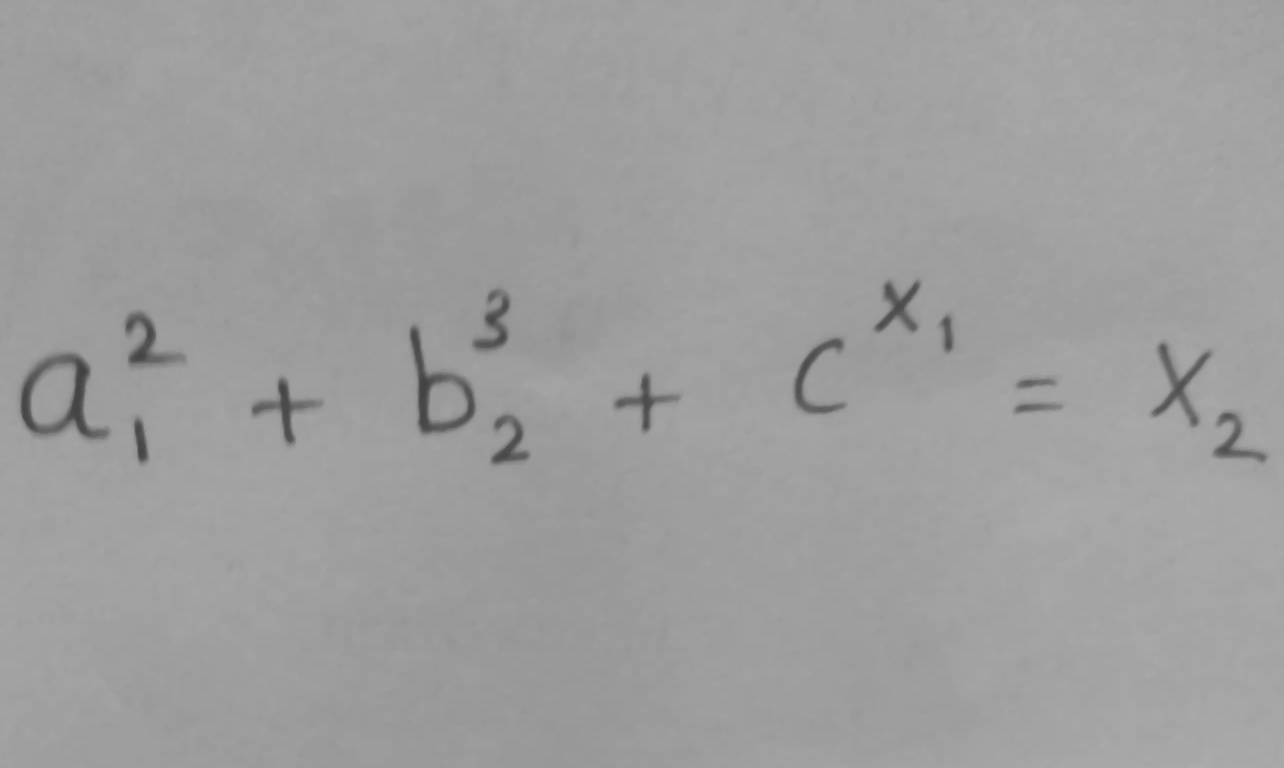 a₁² + b₂³ + c^{x₁} = x₂